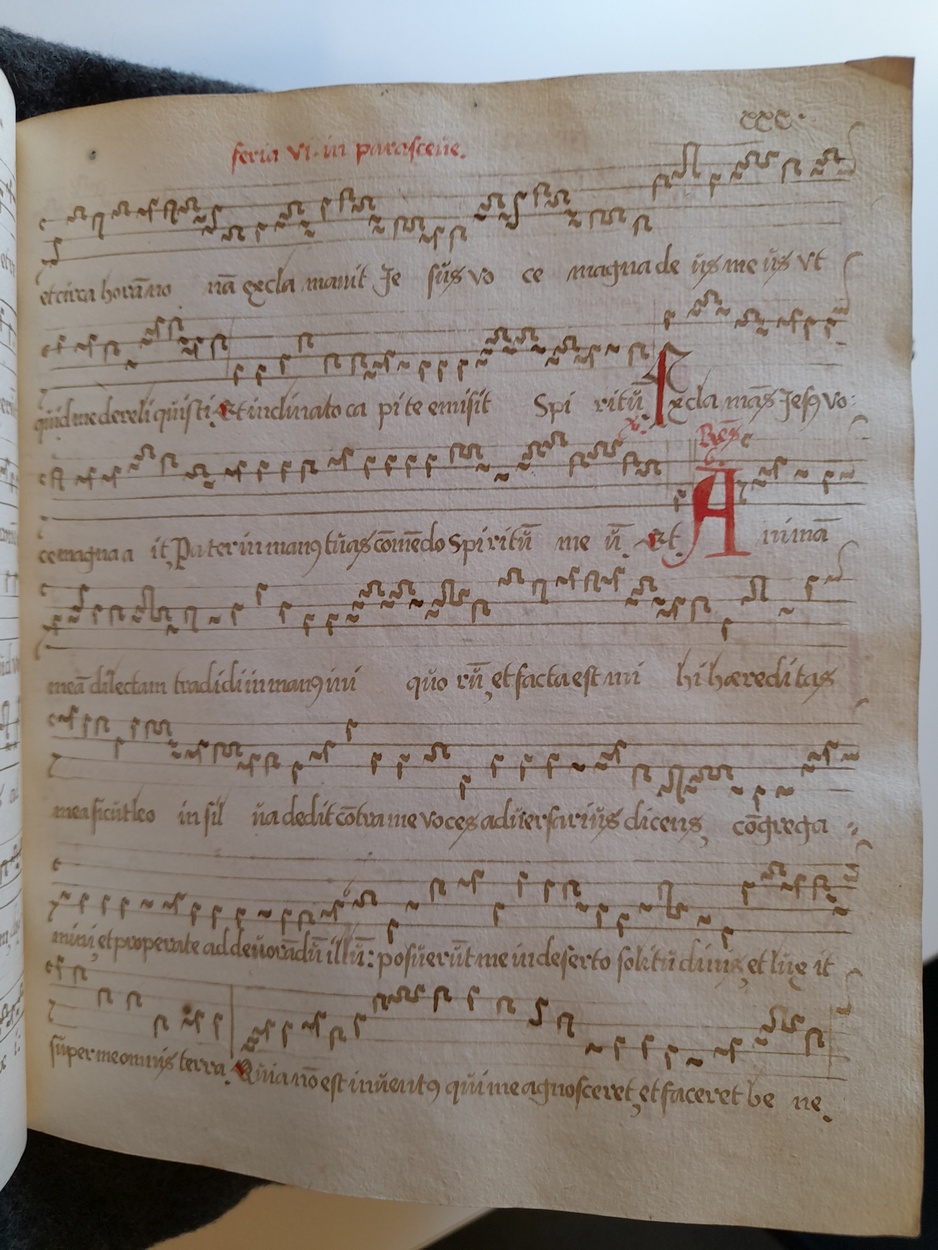 xxx.
feria vi. in parasceue.
et circa horā no nā excla mauit Je sus vo ce magna de us me us vt
quid me dereli quisti. Et inclinato ca pi te emisit Spi ritū. Excla mās Jesꝰ vo:
℣.
Res̃
ce magna a it, Pater in manꝰ tuas cōmēdo Spi ritū me ū. Et. A nimā
meā dilectam tradidi in manꝰ ini quo rū, et facta est mi hi hæreditas
mea sicut leo in sil ua dedit cōtra me voces aduersarius dicens, cōgrega
mini, et properate ad deuorādū illū: posuerūt me in deserto solitu dinis, et lux it
super me omnis terra. Quia nō est inuentꝰ qui me agnosceret, et faceret be ne.